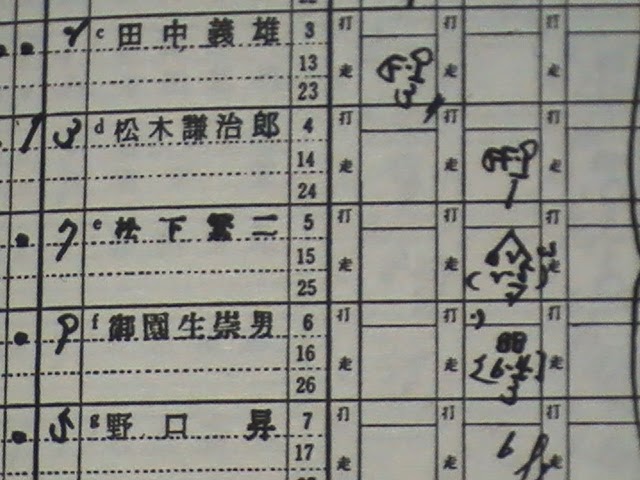 c 田中義雄 3 打 打 打
13 走 走 走
23 3
1 3 d 松木謙治郎 4 打 打 打
14 走 走 走
24 1
7 e 松下繁二 5 打 打 打
15 走 走 走
25
9 f 御園生崇男 6 打 打 打
16 走 走 走
26 3
5 g 野口昇 7 打 打 打
17 走 6 走